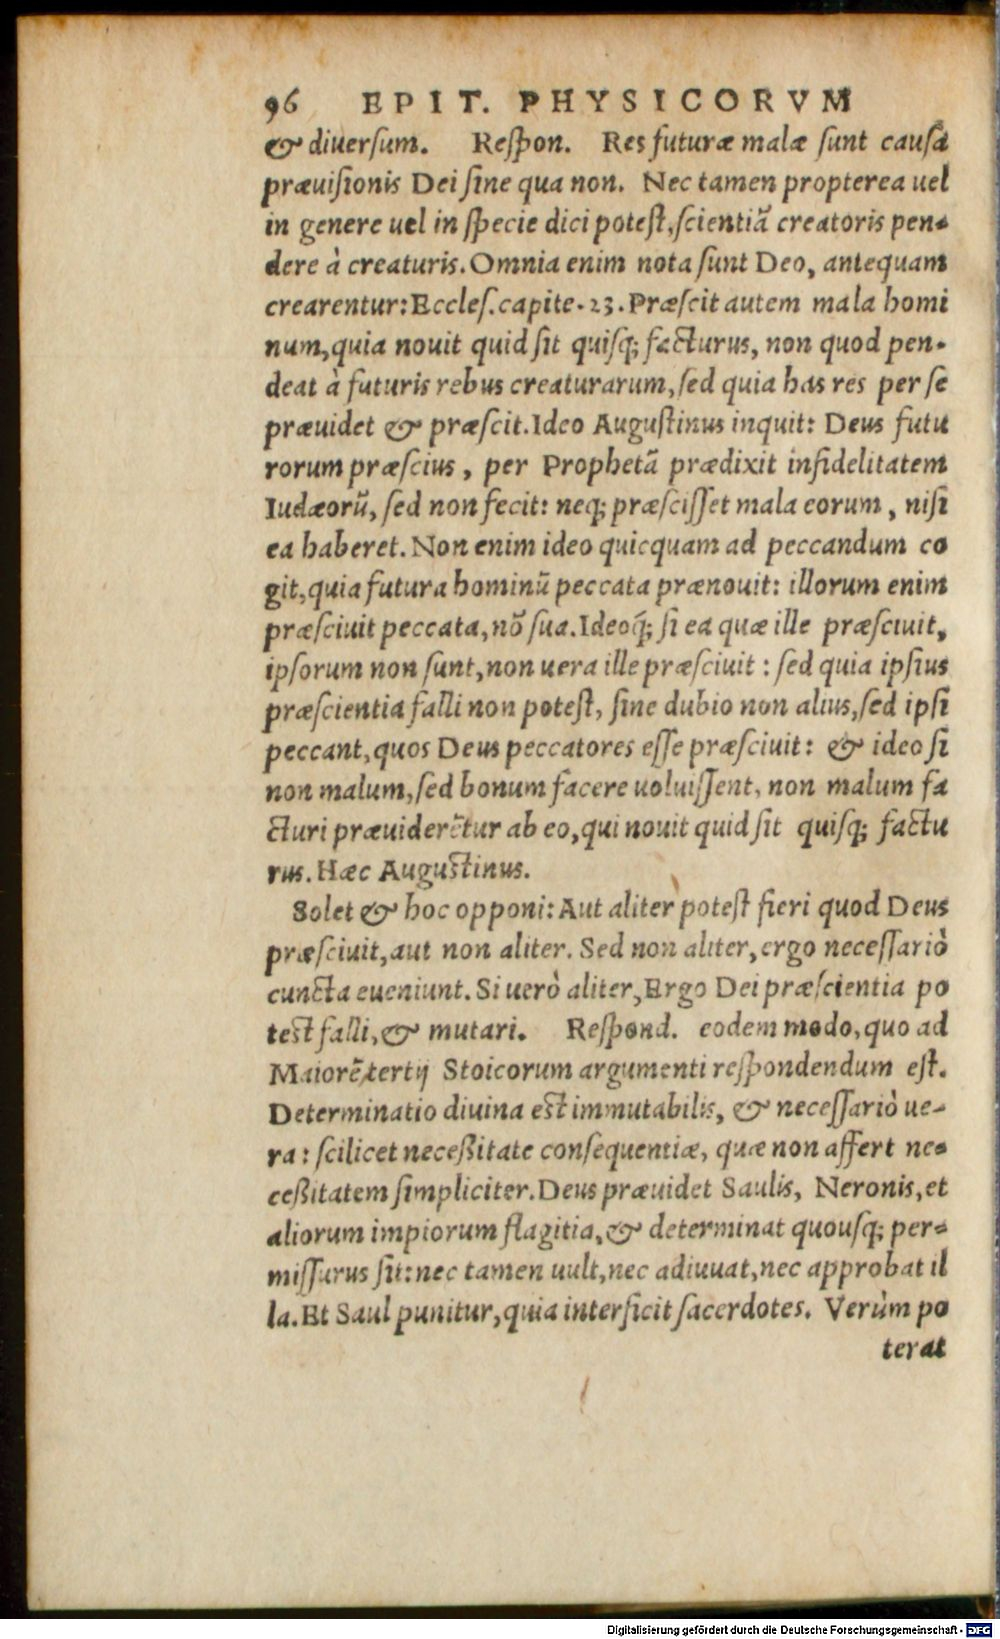 96 EPIT. PHYSICORVM
& diuersum. Respon. Res futuræ malæ sunt causâ
præuisionis Dei sine qua non. Nec tamen propterea uel
in genere uel in specie dici potest, scientiã creatoris pen-
dere à creaturis. Omnia enim nota sunt Deo, antequam
crearentur: Eccles. capite. 23. Præscit autem mala homi
num, quia nouit quid sit quisq; facturus, non quod pen-
deat à futuris rebus creaturarum, sed quia has res per se
præuidet & præscit. Ideo Augustinus inquit: Deus futu
rorum præscius, per Prophetã prædixit infidelitatem
Iudæorũ, sed non fecit: neq; præscisset mala eorum, nisi
ea haberet. Non enim ideo quicquam ad peccandum co
git, quia futura hominũ peccata prænouit: illorum enim
præsciuit peccata, nõ sua. Ideoq́; si ea quæ ille præsciuit,
ipsorum non sunt, non uera ille præsciuit: sed quia ipsius
præscientia falli non potest, sine dubio non alius, sed ipsi
peccant, quos Deus peccatores esse præsciuit: & ideo si
non malum, sed bonum facere uoluissent, non malum fa
cturi præuiderẽtur ab eo, qui nouit quid sit quisq; factu
rus. Hæc Augustinus.
Solet & hoc opponi: Aut aliter potest fieri quod Deus
præsciuit, aut non aliter. Sed non aliter, ergo necessariò
cuncta eueniunt. Si uerò aliter, Ergo Dei præscientia po
test falli, & mutari. Respond. eodem modo, quo ad
Maiorẽ tertij Stoicorum argumenti respondendum est.
Determinatio diuina est immutabilis, & necessariò ue-
ra: scilicet neceßitate consequentiæ, quæ non affert ne-
ceßitatem simpliciter. Deus præuidet Saulis, Neronis, et
aliorum impiorum flagitia, & determinat quousq; per-
missurus sit: nec tamen uult, nec adiuuat, nec approbat il
la. Et Saul punitur, quia interficit sacerdotes. Verùm po
terat
Digitalisierung gefördert durch die Deutsche Forschungsgemeinschaft - DFG